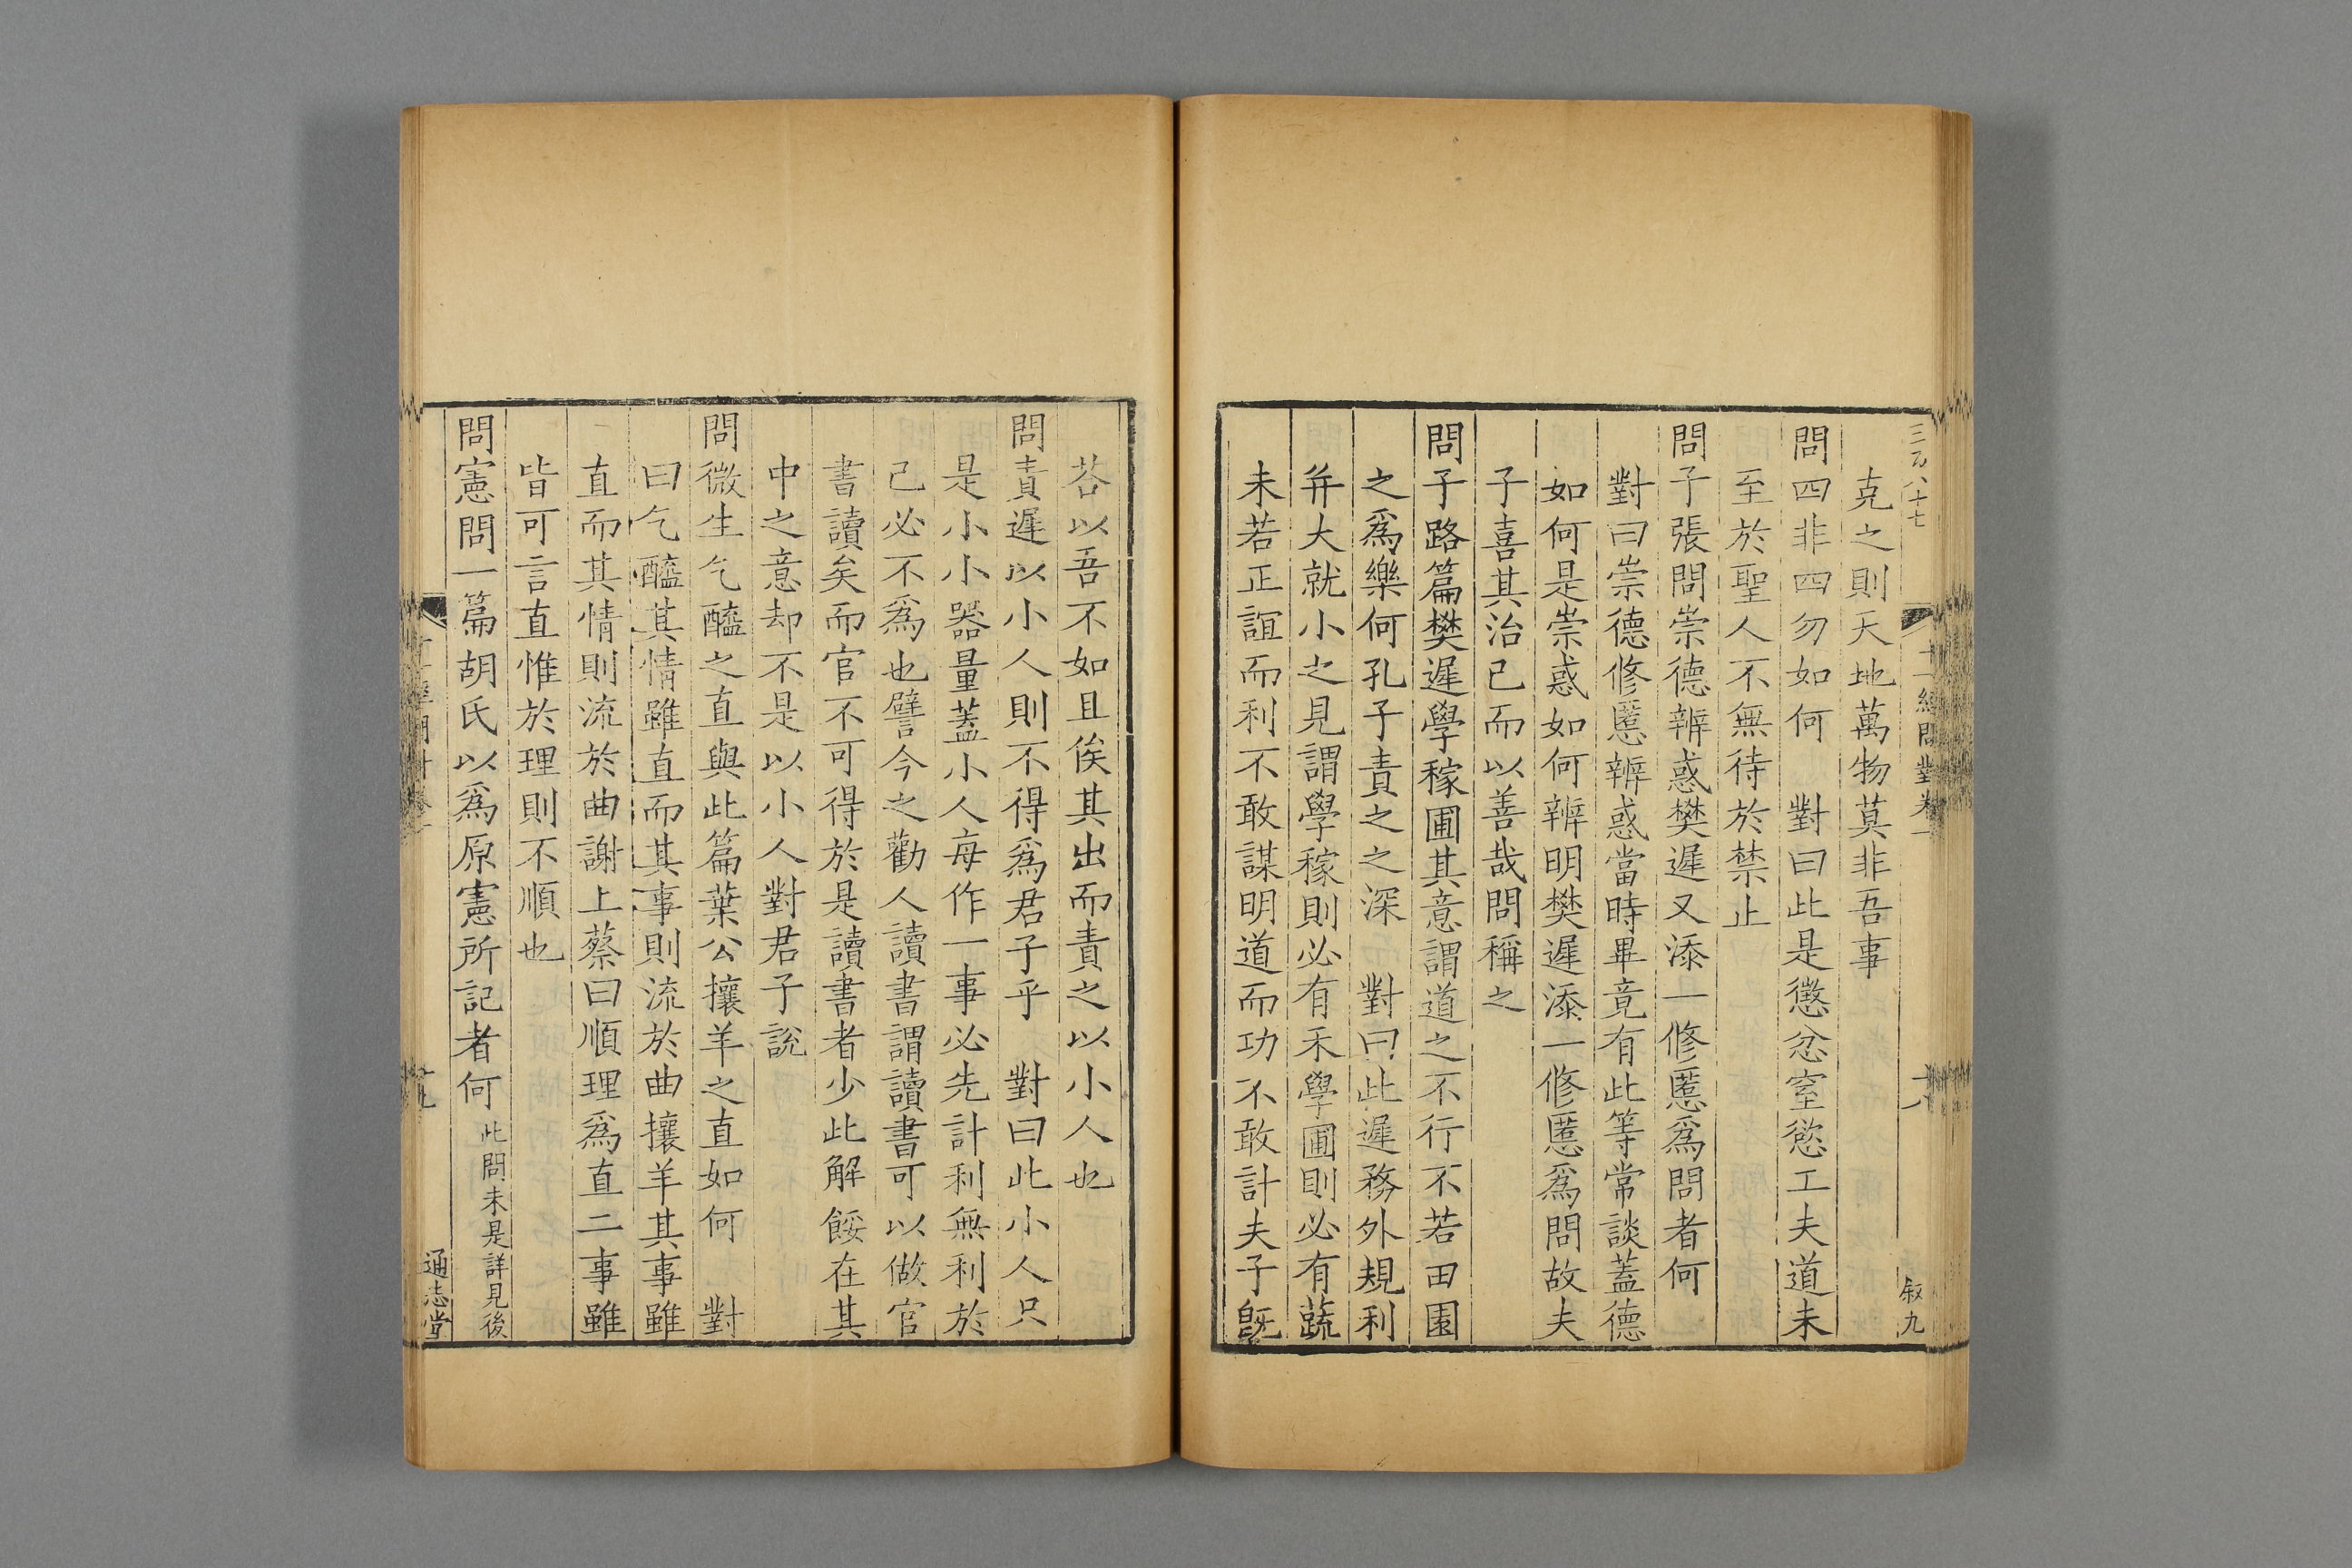 克之則天地萬物莫非吾事
問四非四勿如何　對曰此是懲忿窒慾工夫道未
至於聖人不無待於禁止
問子張問崇德辨惑樊遲又添一修慝爲問者何
對曰崇德修慝辨惑當時畢竟有此等常談蓋德
如何是崇惑如何辨明樊遲添一修慝爲問故夫
子喜其治己而以善哉問稱之
問子路篇樊遲學稼圃其意謂道之不行不若田園
之爲樂何孔子責之之深　對曰此遲務外規利
弃大就小之見謂學稼則必有禾學圃則必有蔬
未若正誼而利不敢謀明道而功不敢計夫子旣
荅以吾不如且俟其出而責之以小人也
問責遲以小人則不得爲君子乎　對曰此小人只
是小小器量蓋小人每作一事必先計利無利於
己必不爲也譬今之勸人讀書謂讀書可以做官
書讀矣而官不可得於是讀書者少此解餒在其
中之意却不是以小人對君子說
問微生乞醯之直與此篇葉公攘羊之直如何　對
曰乞醯其情雖直而其事則流於曲攘羊其事雖
直而其情則流於曲謝上蔡曰順理爲直二事雖
皆可言直惟於理則不順也
問憲問一篇胡氏以爲原憲所記者何 此問未是詳見後
通志堂
十一經問對卷一
叙九